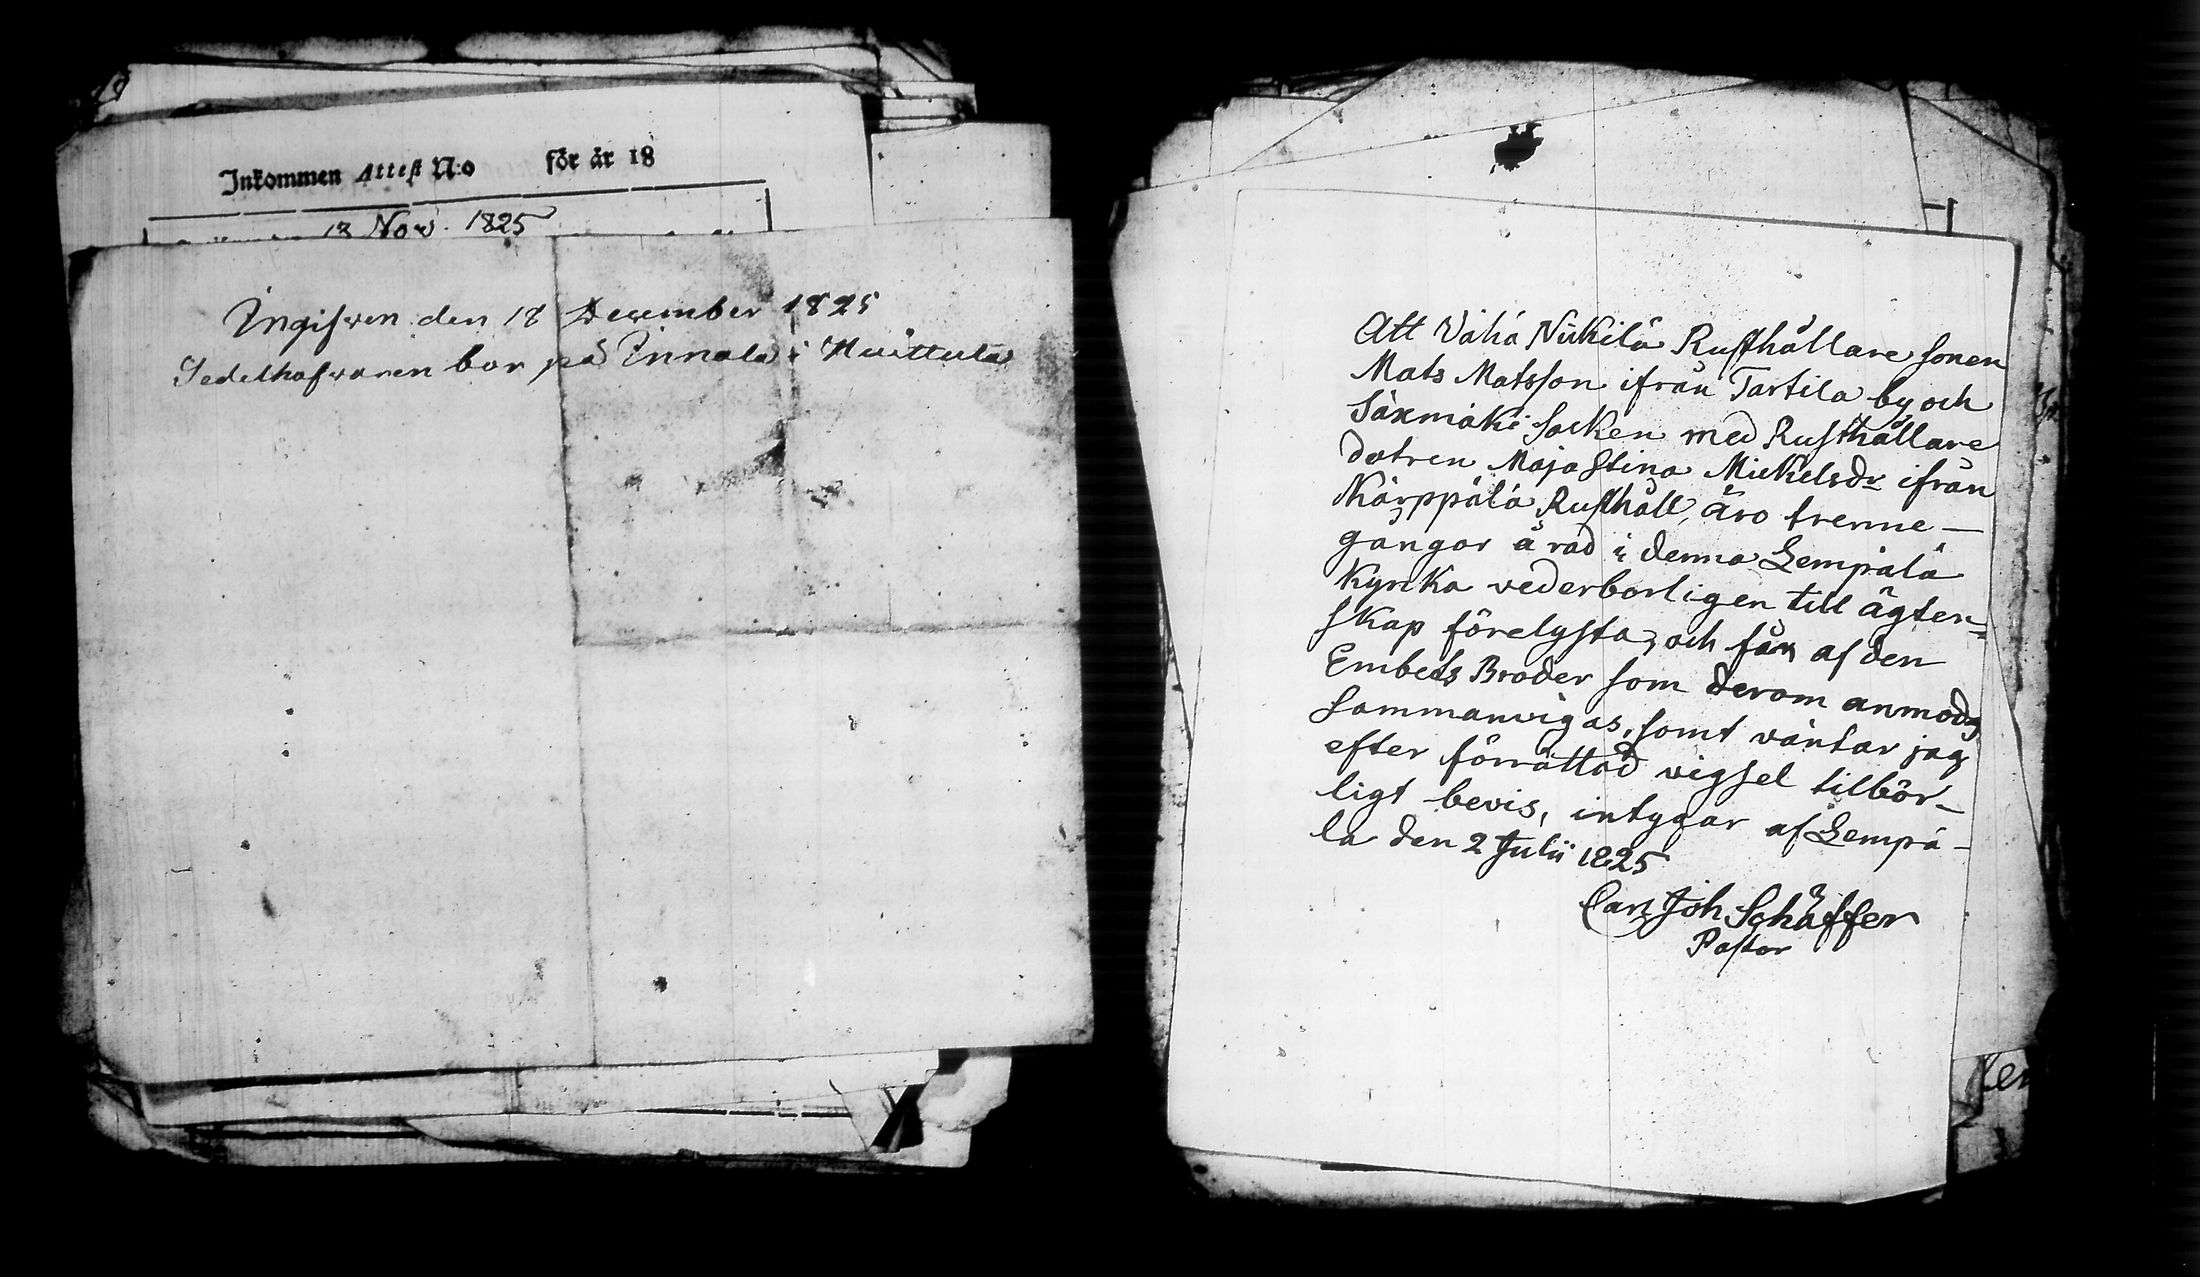 Inkommen Attest N:o för år 18
18 Nov. 1825
Ingifven den 18 December 1825
Sedelhafvaren bor på Innala i Huittula
Att Vähä Nikkilä Rusthållare sonen
Mats Matsson ifrån Tartila by och
Säxmäki socken med Rusthållare
dotren Maja Stina Mickelsdr ifrån
Kärppälä Rusthåll, äro trenne —
gångor å rad i denna Lempälä
Kyrka vederborligen till ägten=
skap förelysta, och får af den
Embets Broder som derom anmodas
sammanvigas, somt väntar jag
efter förrättad vigsel tilbör-
ligt bevis, intygar af Lempä-
la den 2 Julii 1825
Carl Joh Schäffer
Pastor